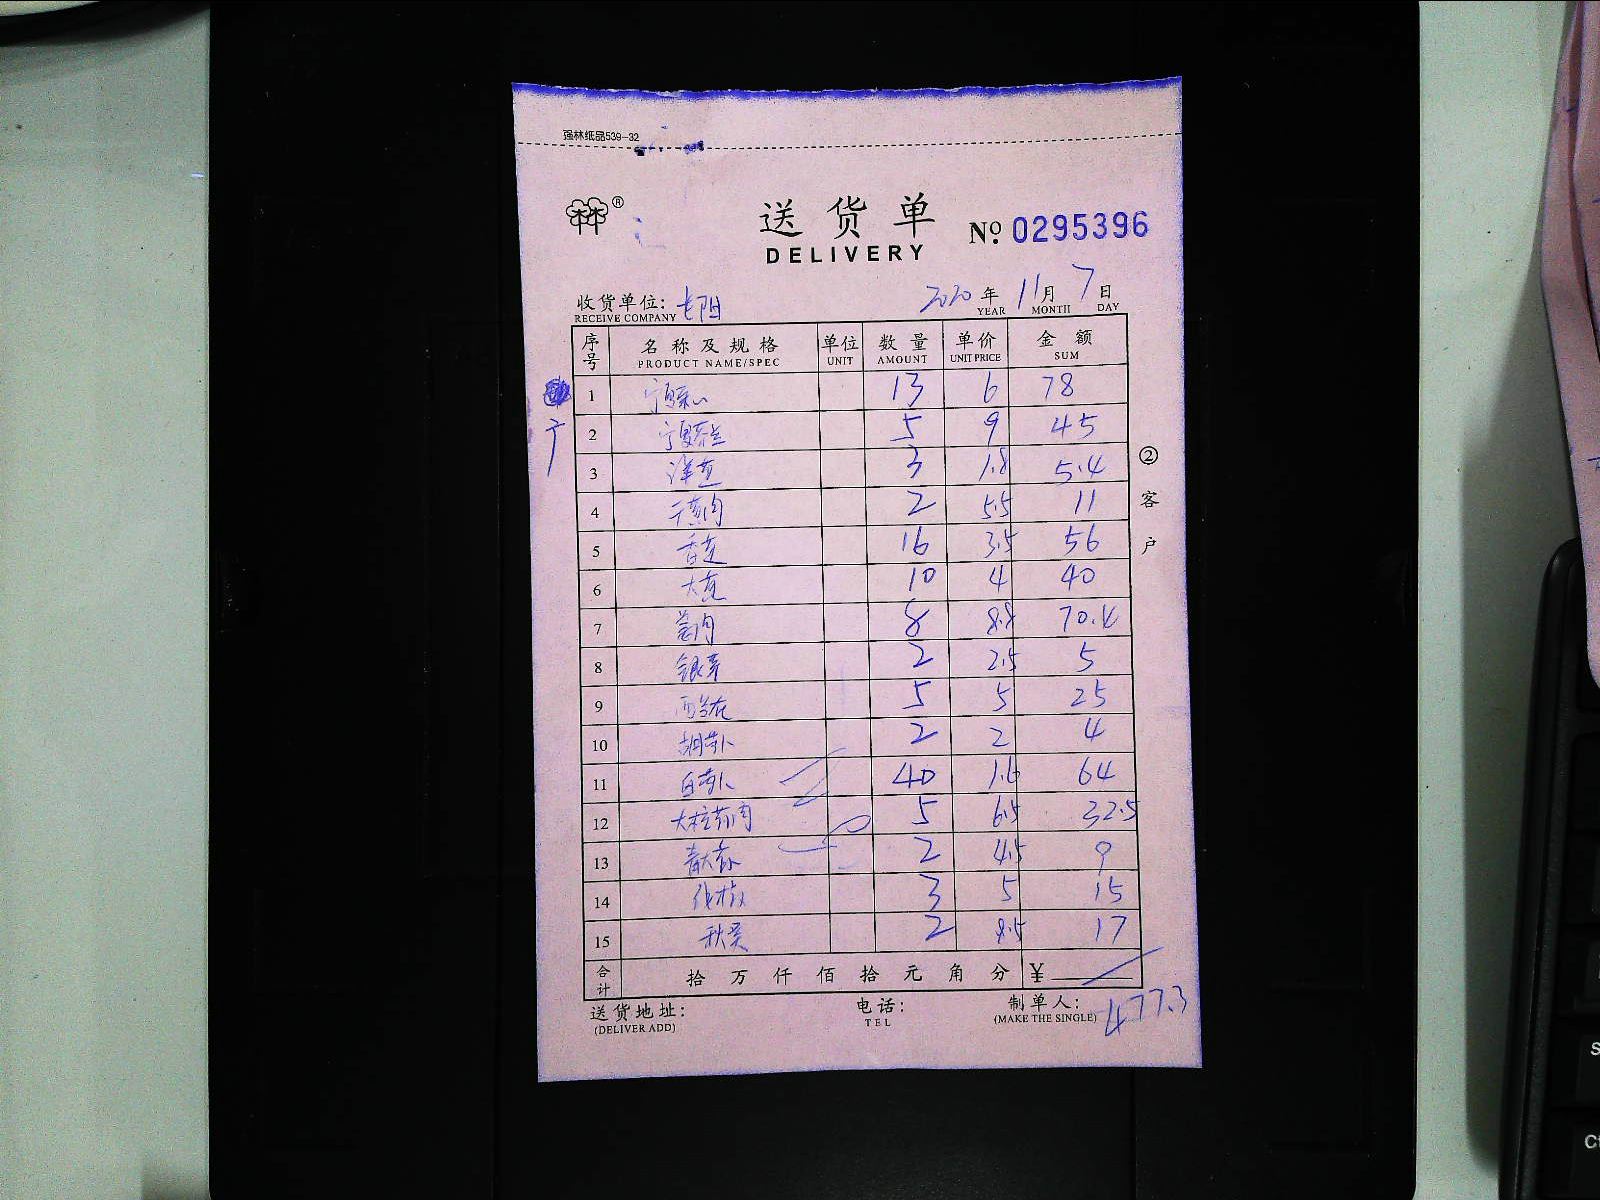 强林纸品539-32
林林®
送货单
DELIVERY
No. 0295396
收货单位: 长阳 2020年11月7日
RECEIVE COMPANY YEAR MONTH DAY
序号 名称及规格 单位 数量 单价 金额
PRODUCT NAME/SPEC UNIT AMOUNT UNIT PRICE SUM
1 宁夏菜心 13 6 78
2 宁夏芥兰 5 9 45
3 3 1.8 5.4
4 2 5.5 11
5 16 3.5 56
6 10 4 40
7 8 8.8 70.4
8 银芽 2 2.5 5
9 5 5 25
10 胡萝卜 2 2 4
11 白萝卜 40 1.6 64
12 5 6.5 32.5
13 2 4.5 9
14 3 5 15
15 秋葵 2 8.5 17
合计 拾 万 仟 佰 拾 元 角 分 ¥
477.3
送货地址: 电话: 制单人:
(DELIVER ADD) TEL (MAKE THE SINGLE)
②客户